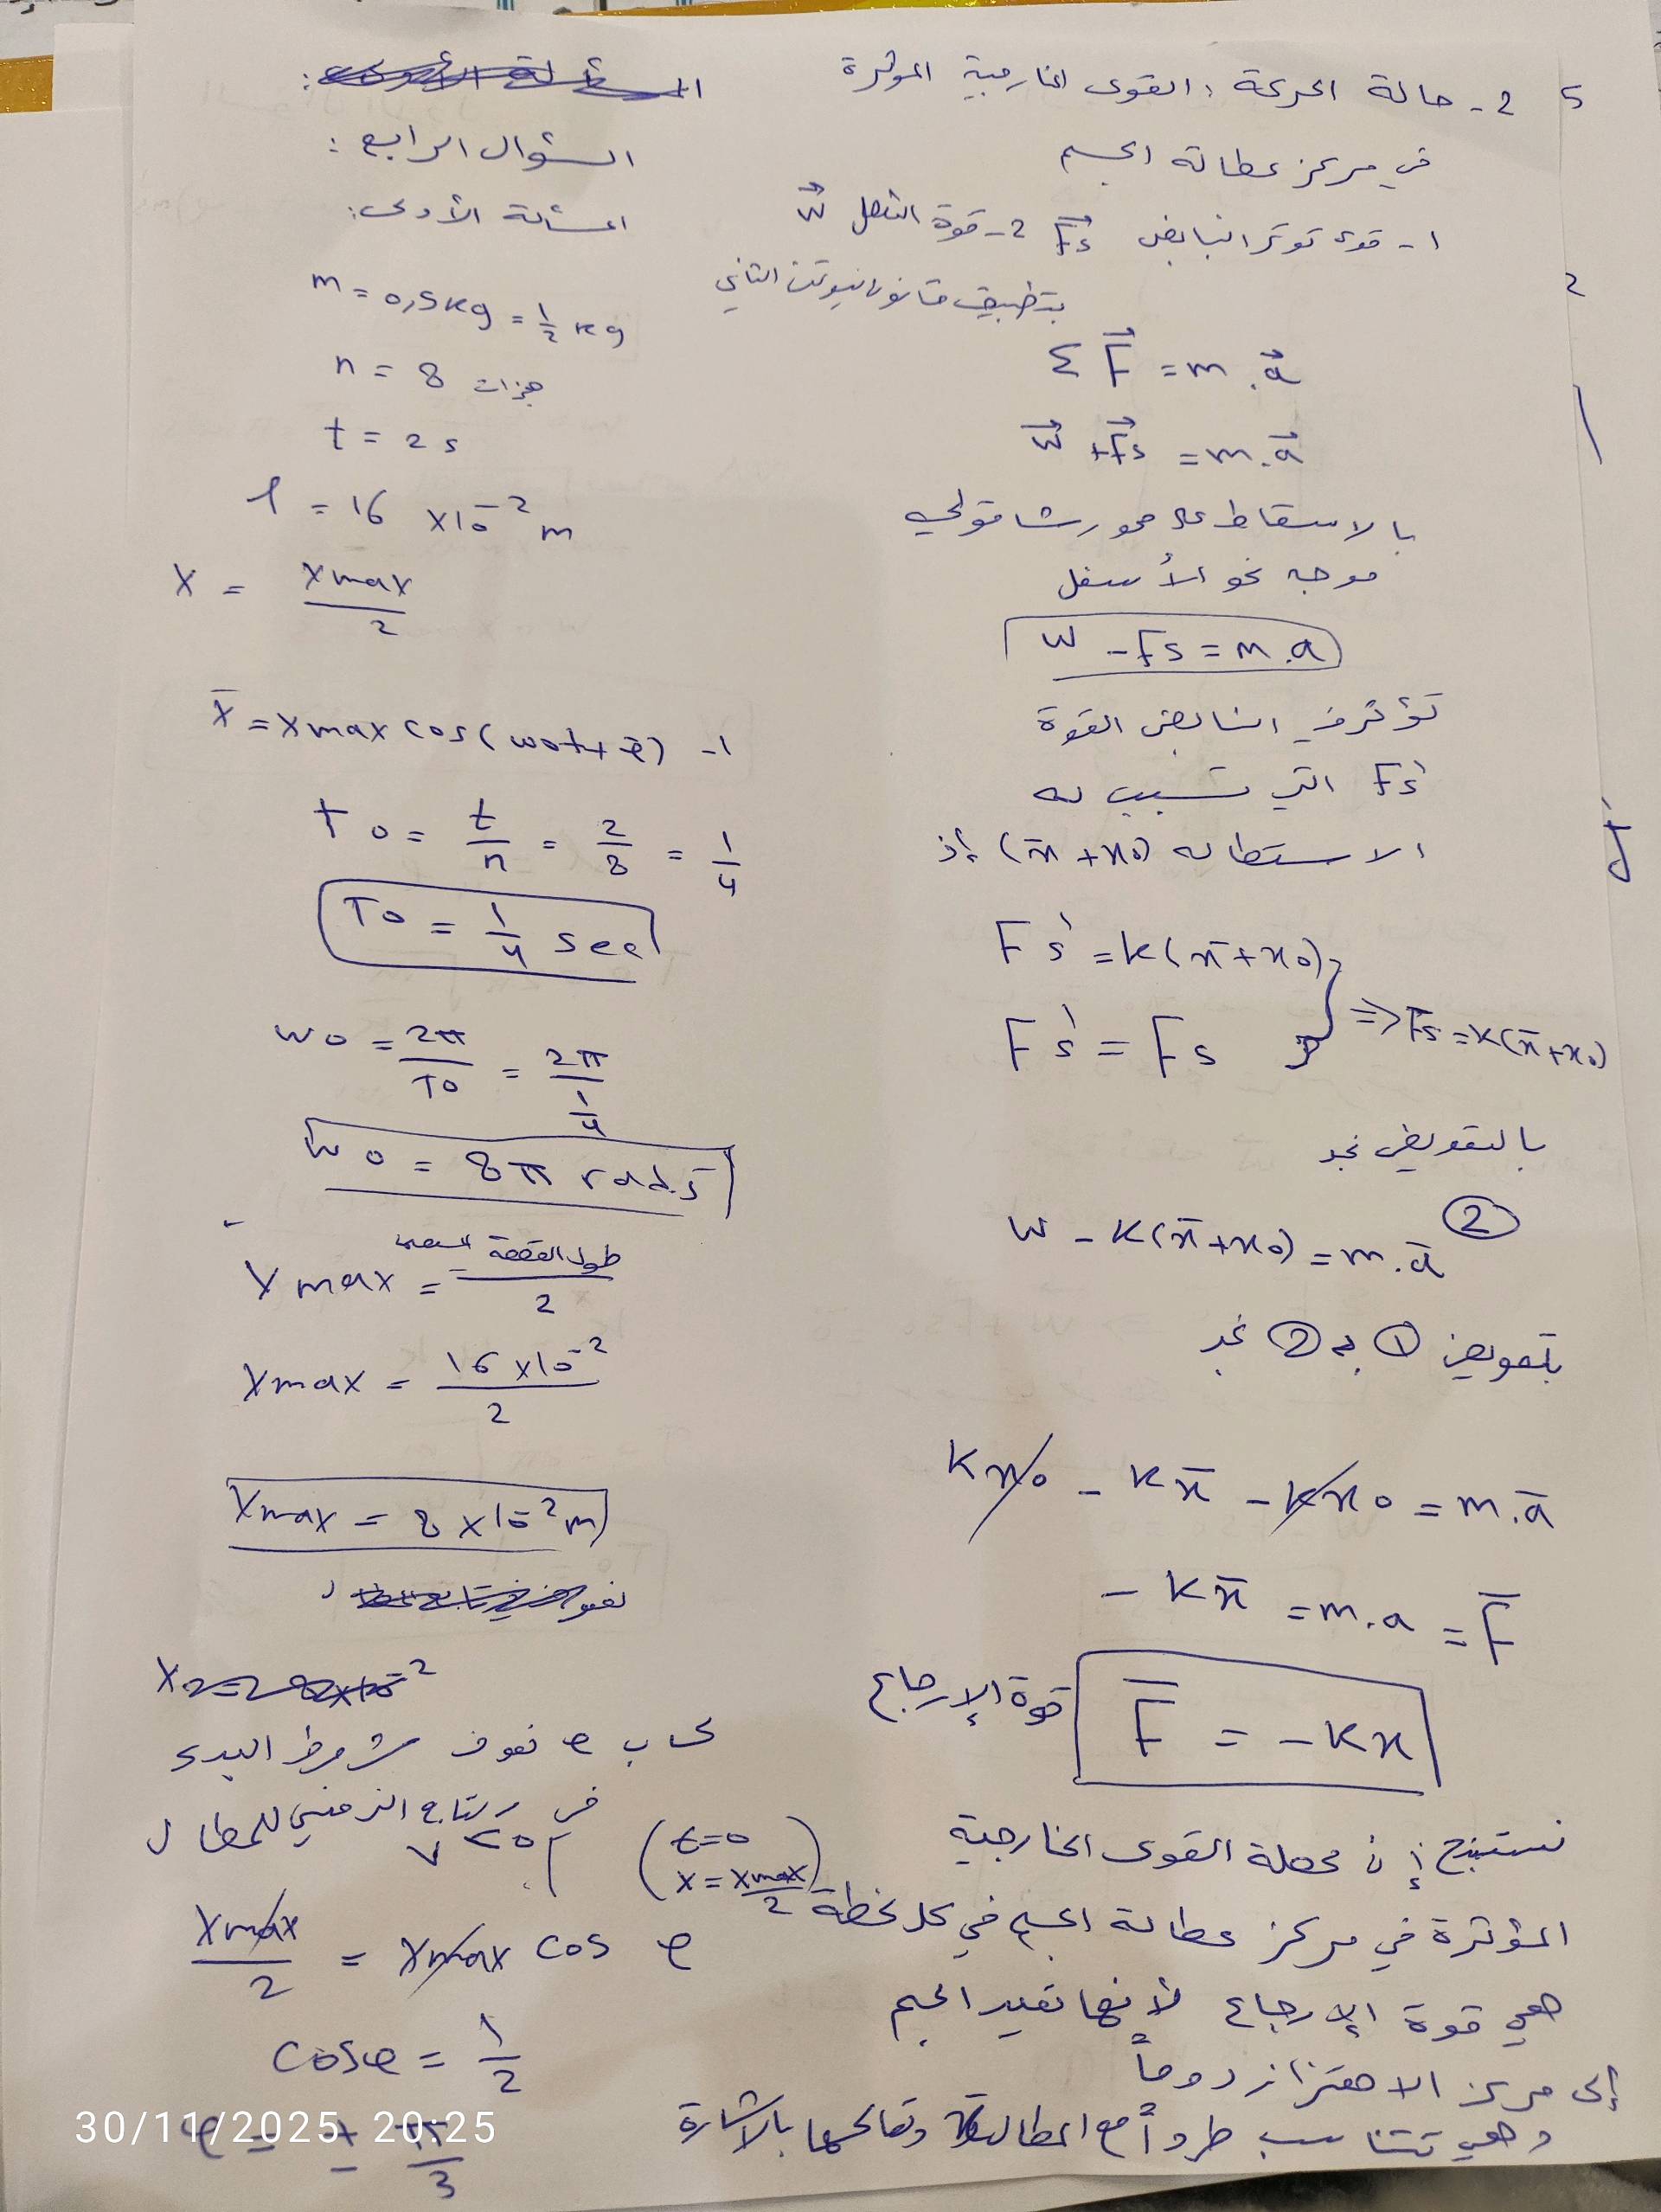 2 - حالة الحركة: القوى الخارجية المؤثرة
في مركز عطالة الجسم
1 - قوة توتر النابض Fs 2 - قوة الثقل W
بتطبيق قانون نيوتن الثاني
Σ F = m . a
W + Fs = m . a
بالاسقاط على محور شاقولي
موجه نحو الأسفل
W - Fs = m . a
تؤثر في النابض القوة
Fs' التي تسبب له
الاستطالة (x̄ + x0) إذ
Fs' = k(x̄ + x0)
Fs' = Fs } => Fs = k(x̄ + x0)
بالتعويض نجد
W - k(x̄ + x0) = m . ā ②
بتعويض ① بـ ② نجد
kx0 - kx̄ - kx0 = m . ā
- kx̄ = m . a = F̄
F̄ = - kx قوة الإرجاع
نستنتج إن محصلة القوى الخارجية
المؤثرة في مركز عطالة الجسم في كل لحظة
هي قوة الإرجاع لأنها تعيد الجسم
إلى مركز الاهتزاز دوماً
وهي تتناسب طرداً مع المطال وتعاكسها بالاشارة
السؤال الرابع :
المسألة الأولى:
m = 0,5 kg = 1/2 kg
n = 8 هزات
t = 2 s
l = 16 × 10⁻² m
X = Xmax / 2
x̄ = Xmax cos(ω0t + φ̄) -1
T0 = t/n = 2/8 = 1/4
T0 = 1/4 sec
ω0 = 2π/T0 = 2π/(1/4)
ω0 = 8π rad.s⁻
Xmax = طول القطعة المستقيمة / 2
Xmax = 16 × 10⁻² / 2
Xmax = 8 × 10⁻² m
لحساب φ نعوض شروط البدء
في التابع الزمني للمطال
v < 0 (t = 0
x = Xmax/2)
Xmax/2 = Xmax cos φ
cos φ = 1/2
φ = ± π/3
30/11/2025 20:25